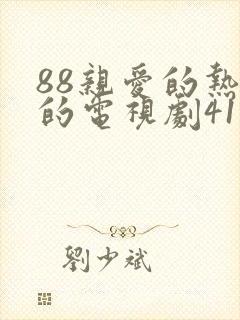 88親愛的熱
的電視劇41
劉少斌